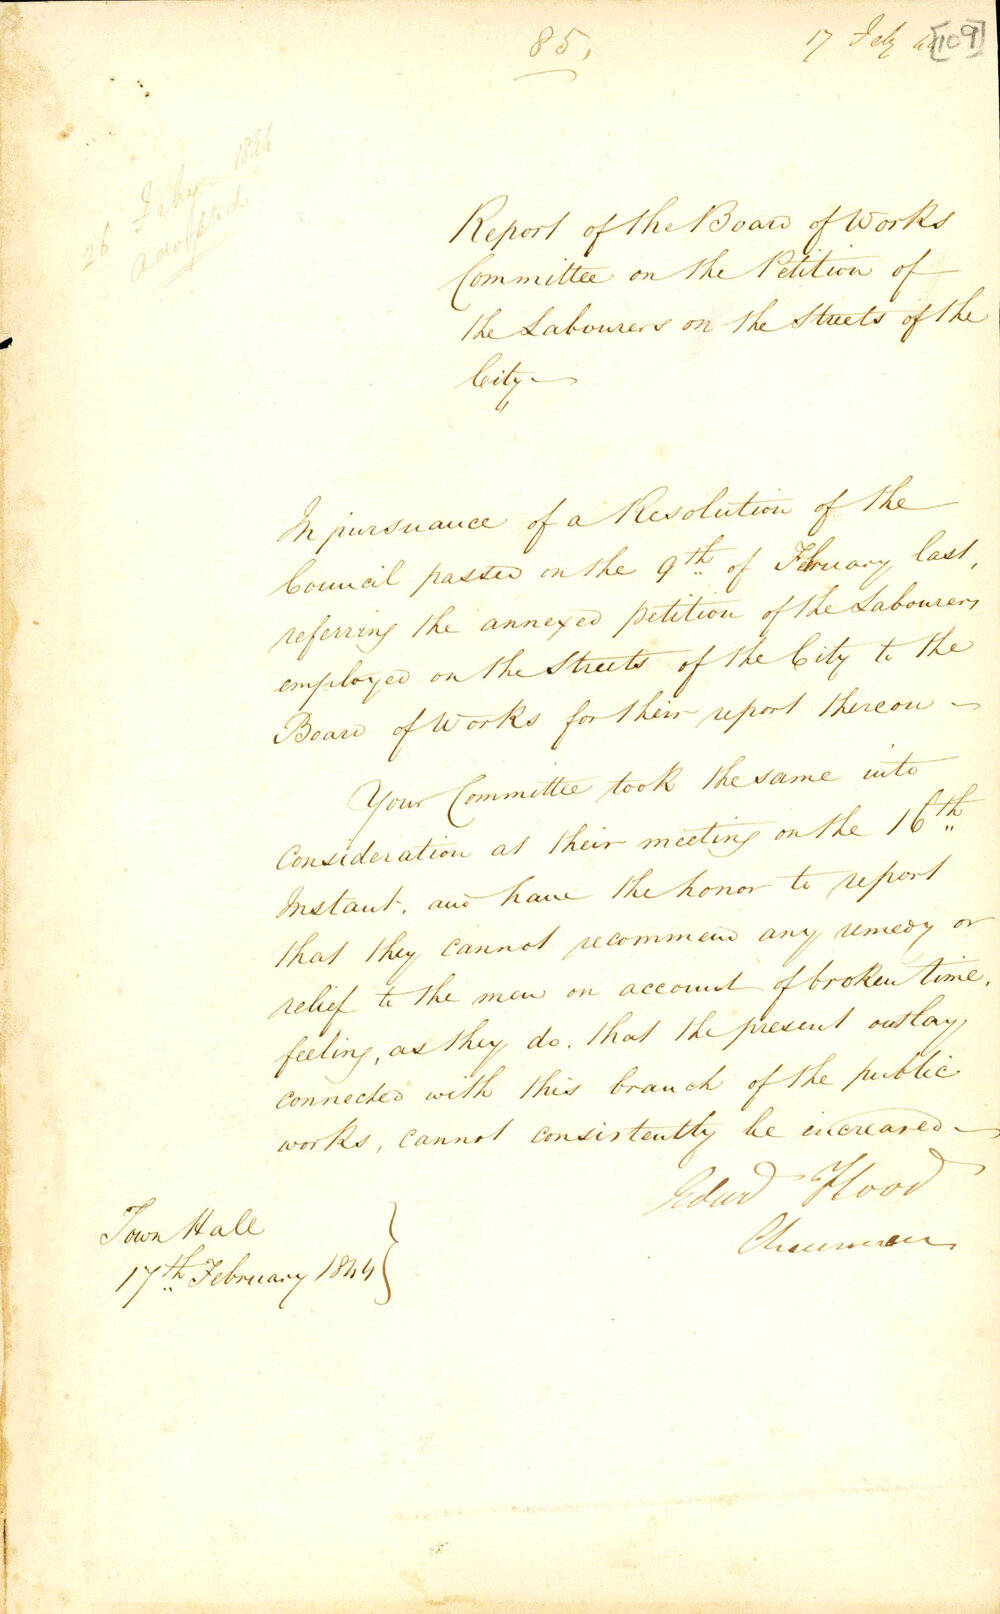 85,
17 Feby 44 [109]
26 Feby 1844
adopted
Report of the Board of Works
Committee on the Petition of
the Labourers on the Streets of the
City
In pursuance of a Resolution of the
Council passed on the 9th of February last,
referring the annexed petition of the Labourers
employed on the Streets of the City to the
Board of Works for their report thereon
Your Committee took the same into
consideration at their meeting on the 16th
Instant. and have the honor to report
that they cannot recommend any remedy or
relief to the men on account of broken time,
feeling, as they do, that the present outlay
connected with this branch of the public
works, cannot consistently be increased
Edwd Flood
Chairman
Town Hall
17th February 1844